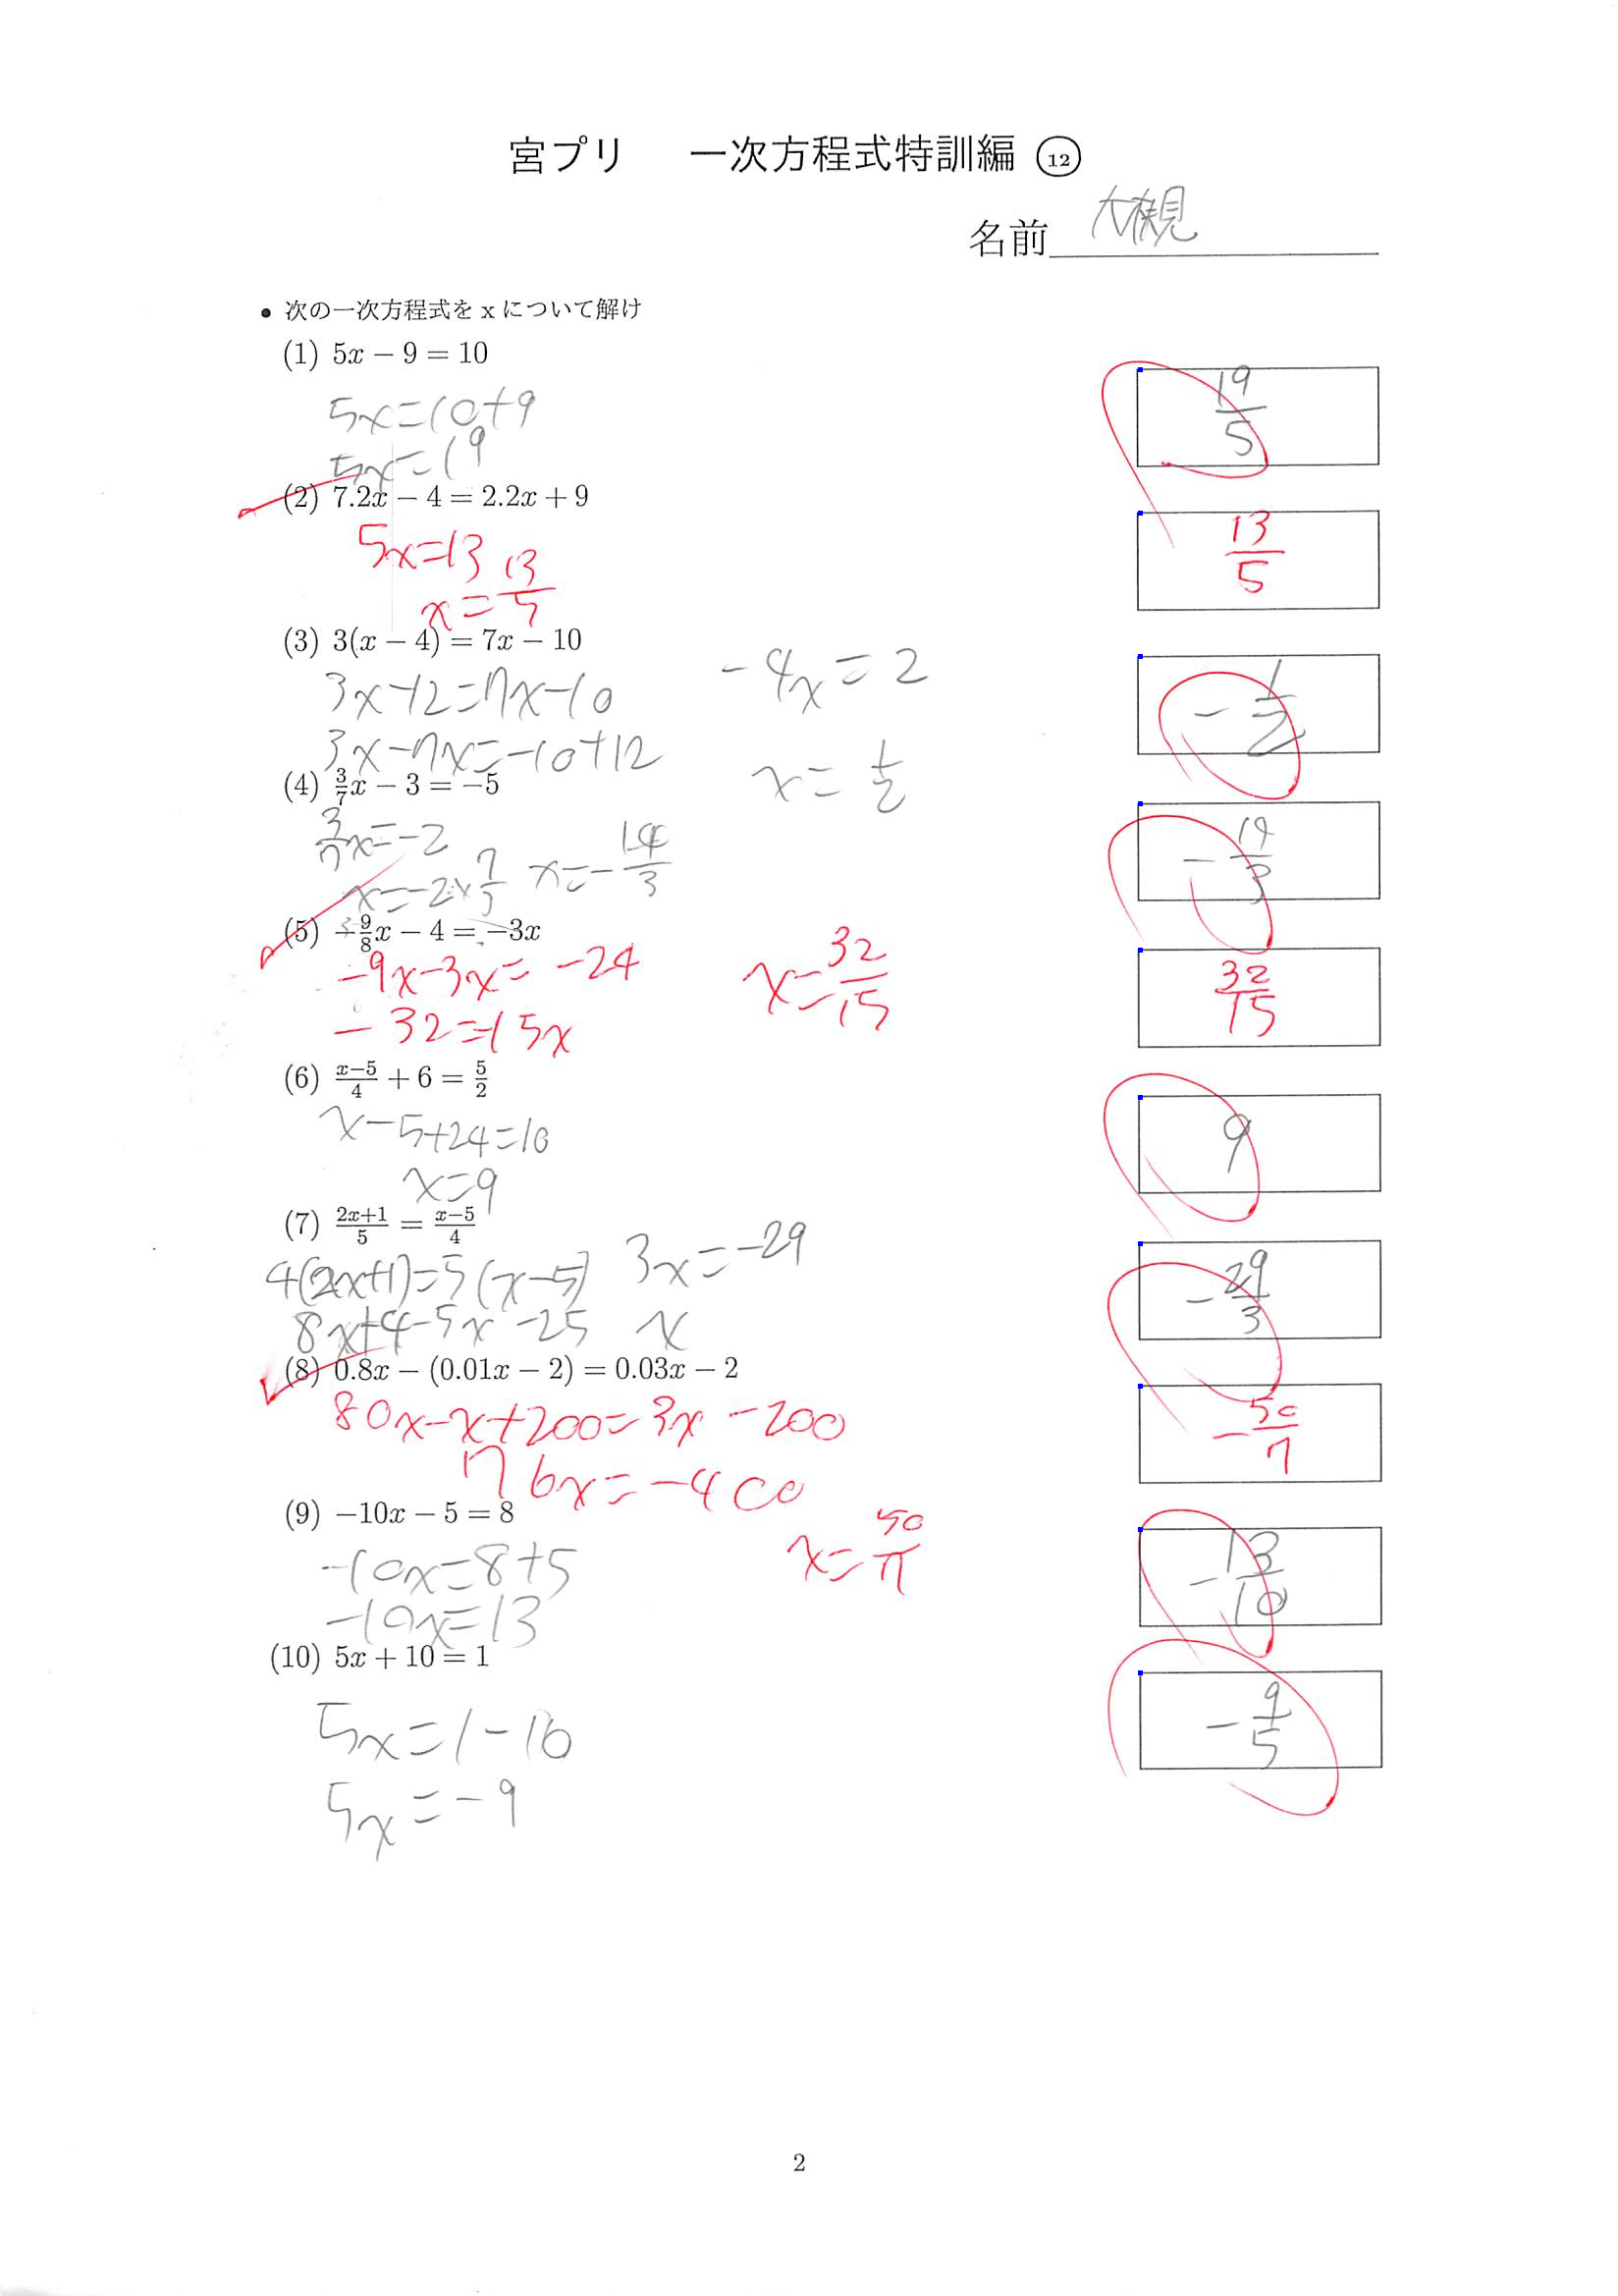 宮プリ 一次方程式特訓編 ⑫
名前 大槻
• 次の一次方程式を x について解け
(1) 5x − 9 = 10
5x=10+9
5x=19
19/5
(2) 7.2x − 4 = 2.2x + 9
5x=13
x=13/5
13/5
(3) 3(x − 4) = 7x − 10
3x-12=7x-10
3x-7x=-10+12
-4x=2
x=1/2
-1/2
(4) 3/7x − 3 = −5
3/7x=-2
x=-2×7/3
x=-14/3
-14/3
(5) −9/8x − 4 = −3x
-9x-3x=-24
-32=-15x
x=32/15
32/15
(6) x−5/4 + 6 = 5/2
x-5+24=10
x=9
9
(7) 2x+1/5 = x−5/4
4(2x+1)=5(x-5)
8x+4-5x-25
3x=-29
x
-29/3
(8) 0.8x − (0.01x − 2) = 0.03x − 2
80x-x+200=3x-200
76x=-400
x=50/7
-50/7
(9) −10x − 5 = 8
-10x=8+5
-10x=13
-13/10
(10) 5x + 10 = 1
5x=1-10
5x=-9
-9/5
2